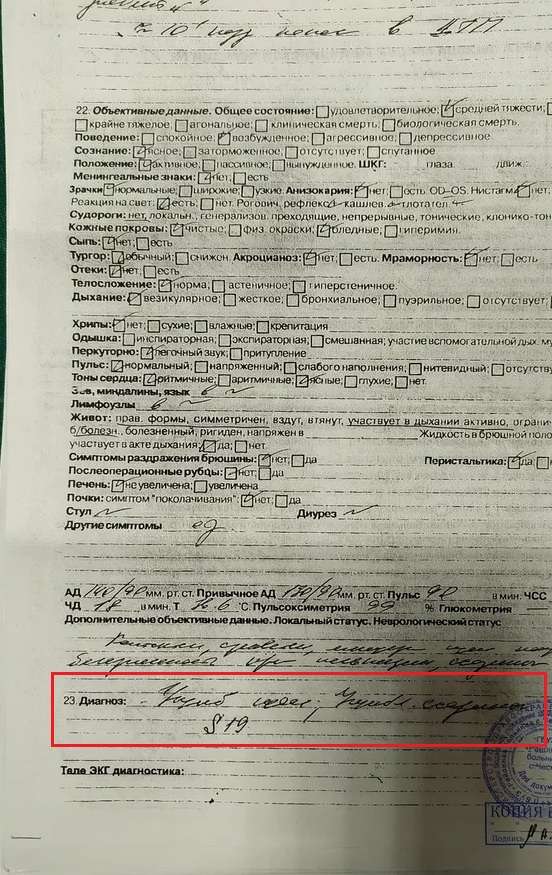 в ДТП
22. Объективные данные. Общее состояние: удовлетворительное; средней тяжести;
крайне тяжелое; агональное; клиническая смерть; биологическая смерть.
Поведение: спокойное; возбужденное; агрессивное; депрессивное.
Сознание: ясное; заторможенное; отсутствует; спутанное.
Положение: активное; пассивное; вынужденное. ШКГ: глаза движ.:
Менингеальные знаки: нет; есть
Зрачки: нормальные; широкие; узкие. Анизокария: нет; есть. OD-OS. Нистагм: нет;
Реакция на свет: есть; нет. Рогович. рефлекс кашлев. глотател.
Судороги: нет, локальн., генерализов. преходящие, непрерывные, тонические, клонико-тон
Кожные покровы: чистые; физ. окраски; бледные; гиперимия.
Сыпь: нет; есть
Тургор: обычный; снижон. Акроцианоз: нет; есть. Мраморность: нет; есть
Отеки: нет; есть
Телосложение: норма; астеничное; гиперстеничное.
Дыхание: везикулярное; жесткое; бронхиальное; пуэрильное; отсутствует;
Хрипы: нет; сухие; влажные; крепитация
Одышка: инспираторная; экспираторная; смешанная; участие вспомогательной дых. му
Перкуторно: легочный звук; притупление
Пульс: нормальный; напряженный; слабого наполнения; нитевидный; отсутству
Тоны сердца: ритмичные; аритмичные; ясные; глухие; нет.
Зев, миндалины, язык
Лимфоузлы
Живот: прав. формы, симметричен, вздут, втянут, участвует в дыхании активно, ограни
б/болезн., болезненный, ригиден, напряжен в Жидкость в брюшной поло
участвует в акте дыхания; да; нет.
Симптомы раздражения брюшины: нет; да Перистальтика: да;
Послеоперационные рубцы: нет; да
Печень: не увеличена; увеличена
Почки: симптом "поколачивания": нет; да
Стул Диурез
Другие симптомы
АД 140/90 мм. рт. ст. Привычное АД 130/90 мм. рт. ст. Пульс 90 в мин. ЧСС
ЧД 18 в мин. Т 36.6 °С. Пульсоксиметрия 99 % Глюкометрия
Дополнительные объективные данные. Локальный статус. Неврологический статус
23. Диагноз: Ушиб шеи; Ушиб
S19
Теле ЭКГ диагностика:
КОПИЯ В
Подпись